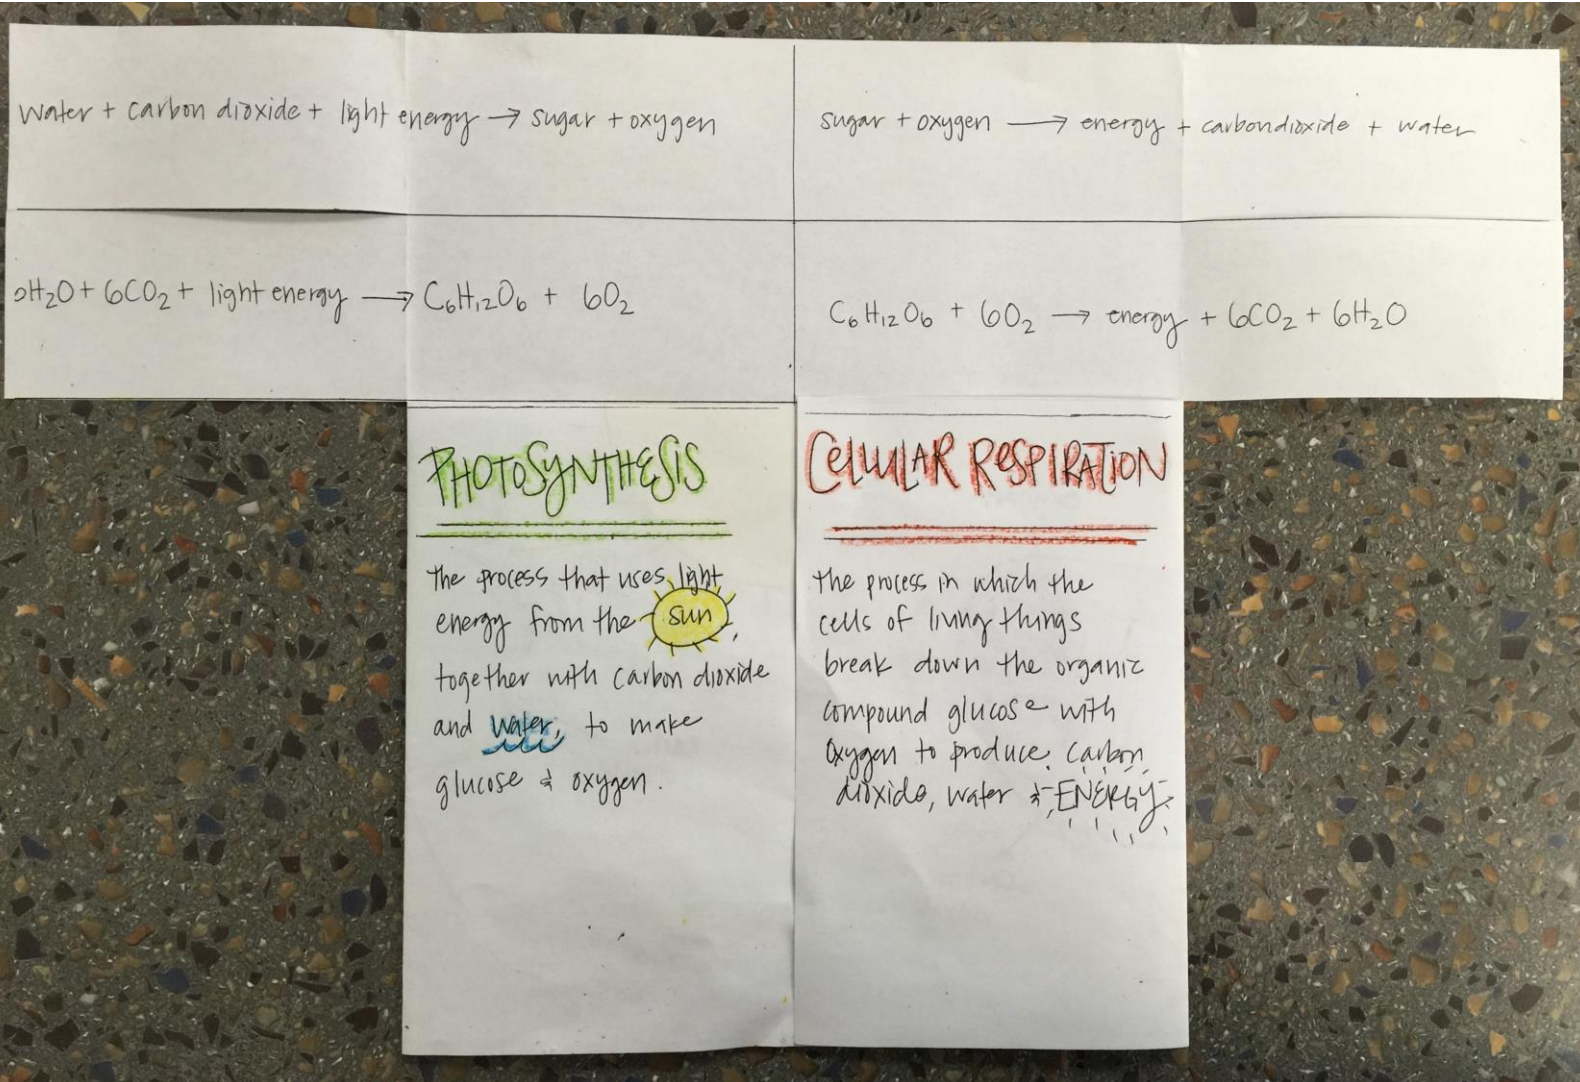 water + carbon dioxide + light energy → sugar + oxygen
sugar + oxygen → energy + carbondioxide + water
H₂O + 6CO₂ + light energy → C₆H₁₂O₆ + 6O₂
C₆H₁₂O₆ + 6O₂ → energy + 6CO₂ + 6H₂O
PHOTOSYNTHESIS
the process that uses light
energy from the sun,
together with carbon dioxide
and water, to make
glucose & oxygen.
CELLULAR RESPIRATION
the process in which the
cells of living things
break down the organic
compound glucose with
oxygen to produce carbon
dioxide, water & ENERGY